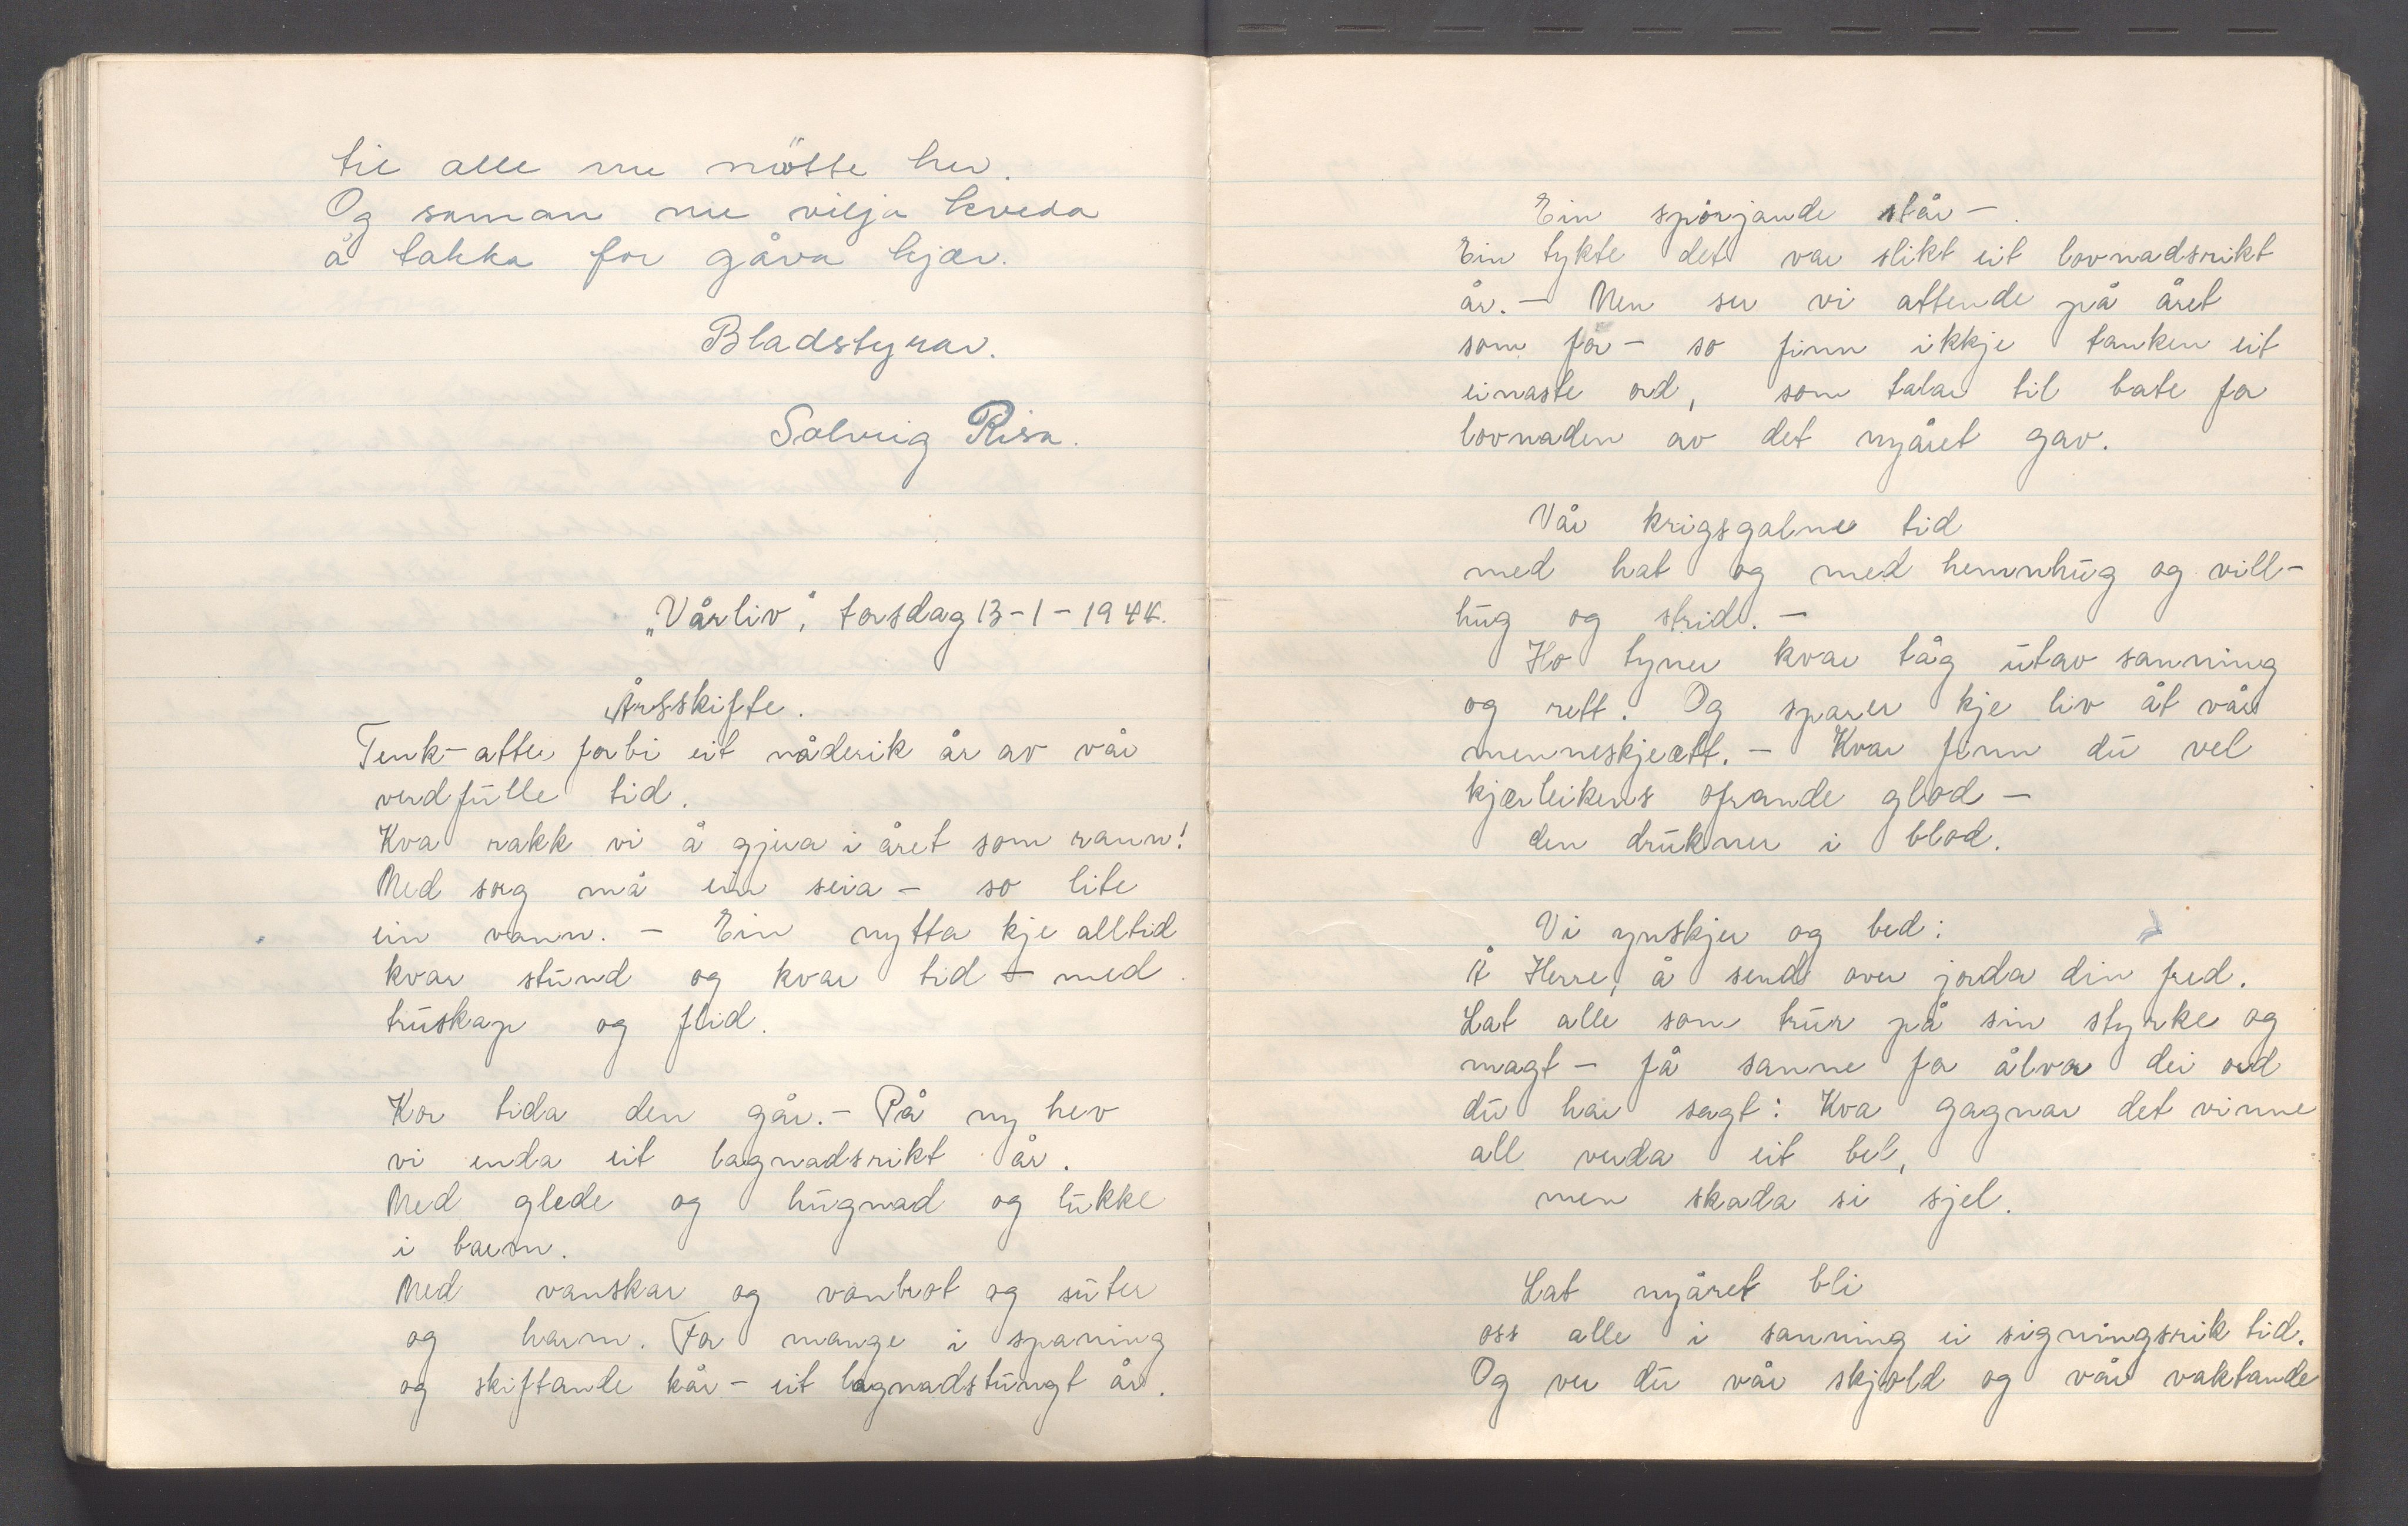 til alle me møtte her.
Og saman me vilja kveda
å takka for gåva kjær.
Bladstyrar.
Solveig Risa.
„Vårliv", torsdag 13-1-1944.
Årsskifte.
Tenk - atter forbi eit nåderik år av vår
verdfulle tid.
Kva rakk vi å gjera i året som rann!
Med sorg må ein seia - so lite
ein vann. - Ein nytta kje alltid
kvar stund og kvar tid - med
truskap og flid.
Kor tida den går. - På ny hev
vi enda eit lagnadsrikt år.
Med glede og hugnad og lukke
i barm.
Med vanskar og vonbrot og suter
og harm. For mange i spaning
og skiftande kår - eit lagnadstungt år.
Ein spørjande står -.
Ein tykte det var slikt eit lovnadsrikt
år. - Men ser vi attende på året
som for - so finn ikkje tanken eit
einaste ord, som talar til bate for
lovnaden av det nyåret gav.
Vår krigsgalne tid
med hat og med hemnhug og vill-
hug og strid. -
Ho tyner kvar tåg utav sanning
og rett. Og sparer kje liv åt vår
menneskjeætt. - Kvar finn du vel
kjærleikens ofrande glod -
den drukner i blod.
Vi ynskjer og bed:
Å Herre, å send over jorda din fred.
Lat alle som trur på sin styrke og
magt - få sanne for ålvor dei ord
du har sagt: Kva gagnar det vinne
all verda eit bel,
men skada si sjel.
Lat nyåret bli
oss alle i sanning ei signingsrik tid.
Og ver du vår skjold og vår vaktande